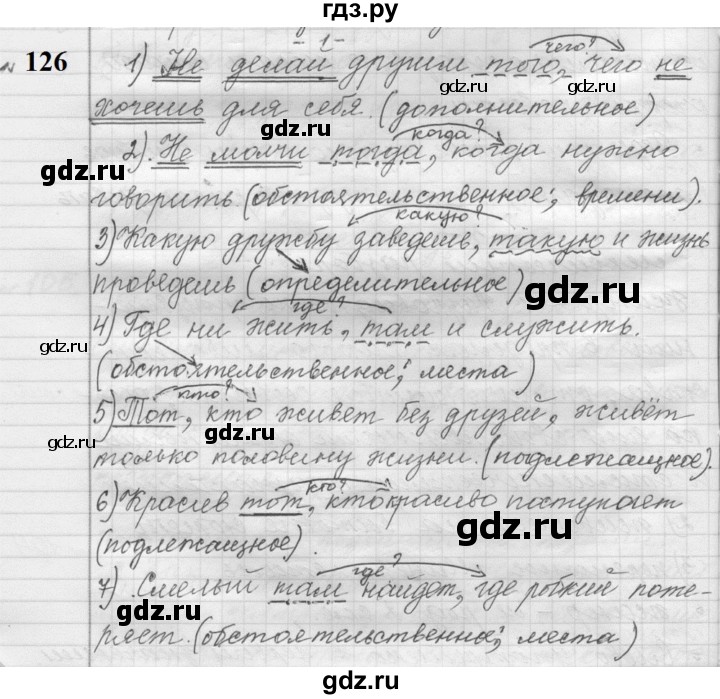 гдз.ру
126
чего?
1) Не делай другим того, чего не
хочешь для себя. (дополнительное)
gdz.ru
когда?
2). Не молчи тогда, когда нужно
gdz.ru
gdz.ru
говорить (обстоятельственное; времени).
какую?
3) Какую дружбу заведешь, такую и жизнь
проведешь (определительное)
gdz.ru
где?
4) Где ни жить, там и служить.
gdz.ru
(обстоятельственное; места)
кто?
5) Тот, кто живет без друзей, живёт
gdz.ru
gdz.ru
только половину жизни. (подлежащное).
кто?
6) Красив тот, кто красиво поступает
gdz.ru
(подлежащное).
где?
7). Смелый там найдет, где робкий поте-
gdz.ru
gdz.ru
ряет. (обстоятельственное; места)
gdz.ru